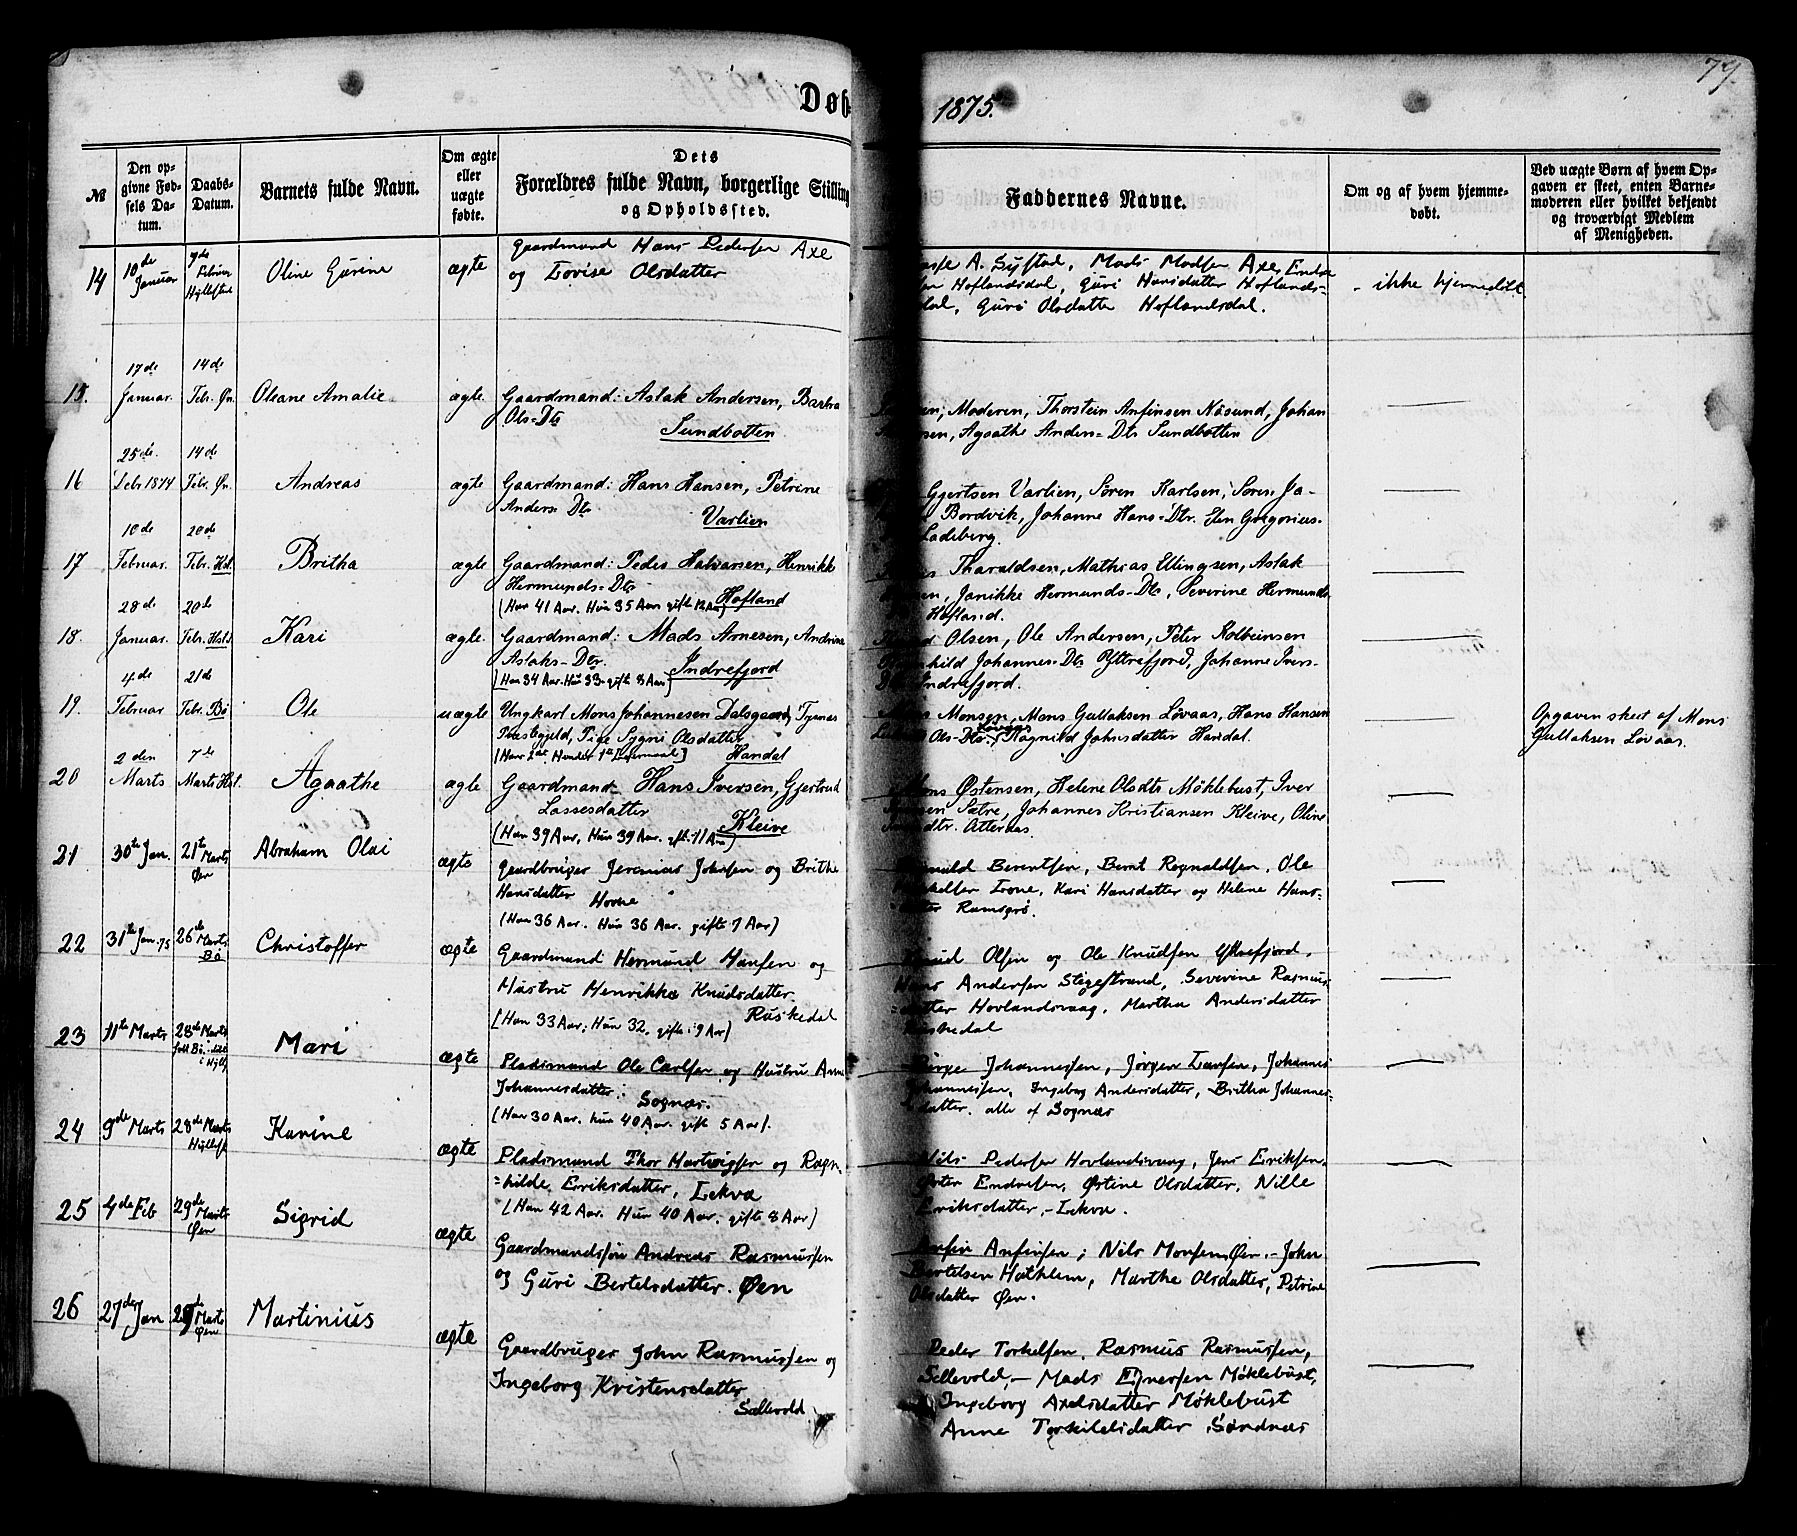 79.
Døb
1875.
№
Den op-
givne Fød-
sels Da-
tum.
Daabs-
Datum.
Barnets fulde Navn.
Om ægte
eller
uægte
fødte.
Dets
Forældres fulde Navn, borgerlige Stilling
og Opholdssted.
Faddernes Navne.
Om og af hvem hjemme-
døbt.
Ved uægte Børn af hvem Op-
gaven er skeet, enten Barne-
moderen eller hvilket bekjendt
og troværdigt Medlem
af Menigheden.
14
10de
Januar
7de
Februar
Hyllestad
Oline Gurine
ægte
Gaardmand Hans Pedersen Axe
og Lovise Olsdatter
Lasse A. Systad, Mads Madsen Axe, Endre
Hoflandsdal, Guri Hansdatter Hoflands-
dal, Guri Olsdatte Hoflandsdal.
ikke hjemmedöbt
15.
17de
Januar.
14de
Febr. Øn.
Oleane Amalie
ægte
Gaardmand: Aslak Andersen, Barbra
Ols-Dtr
Sundbotten
Moderen, Thorstein Anfinsen Nåsund, Johan
Agaathe Anders-Dtr Sundbotten
16
25de
Debr 1874
14de
Febr. Øn.
Andreas
ægte
Gaardmand: Hans Hansen, Petrine
Anders Dtr
Varlien
Gjertsen Varlien, Søren Karlsen, Soren Ja-
Bordvik, Johanne Hans-Dtr. Elen Gregorius-
Ladeberg.
17
10de
Februar.
20de
Febr. Hst.
Britha
ægte
Gaardmand: Peder Halvorsen, Henrikke
Hermunds-Dtr
(Han 41 Aar. Hun 35 Aar gifte 12 Aar)
Hofland
Tharaldsen, Mathias Ellingsen, Aslak
Janikke Hermunds-Dtr, Severine Hermunds
Hofland.
18.
28de
Januar.
20de
Febr. Hst.
Kari
ægte.
Gaardmand: Mads Arnesen, Andrine
Aslaks-Dtr.
[Han 34 Aar. Hun 33. gifte 8 Aar]
Indrefjord
Olsen, Ole Andersen, Peter Kolbeinsen
Johannes-Dtr Yttrefjord, Johanne Ivers-
Dtr Indrefjord.
19.
4de
Februar
21de
Febr. Bø
Ole
uægte
Ungkarl Mons Johannesen Dalsgaard, Tysnæs
Præstegjeld, Pige Sygni Olsdatter
[Hans 2det Hendes 1ste Leiermaal]
Handal
Monsen, Mons Gullaksen Løvaas, Hans Hansen
Ols-Dtr. Løvaas, Ragnild Johnsdatter Handal.
Opgaven skeet af Mons
Gullaksen Løvaas.
20
2den
Marts
7de
Marts Hst.
Agaathe
ægte
Gaardmand Hans Iversen, Gjertrud
Lassesdatter
(Han 39 Aar, Hun 39 Aar. gifte 11 Aar)
Kleive
Mons Østensen, Helene Olsdtr Møklebust, Iver
Sætre, Johannes Kristiansen Kleive, Oline
Atteraas.
21
30te Jan.
21te Marts
Øen
Abraham Olai
ægte
Gaardbruger Jeremias Johnsen og Brithe
Hansdatter Hovne
(Han 36 Aar. Hun 36 Aar gifte 7 Aar)
Berentsen, Bernt Ragnaldsen, Ole
Kari Hansdatter og Helene Hans-
datter Ramsgrø.
22
31te Jan. 75
26de Marts
Bø
Christoffer
ægte
Gaardmand Hermund Hansen og
Hustru Henrikka Knudsdatter
[Han 33 Aar; Hun 32, gifte 9 Aar]
Ruskedal
Knud Olsen og Ole Knudsen Yttrefjord,
Hans Andersen Stigestrand, Severine Rasmus-
datter Hovlandsvaag, Martha Andersdatter
Ruskedal
23
11te Marts
28de Marts
i Hyll
Mari
ægte
Pladsmand Ole Carlsen og Hustru Anne
Johannesdatter.
Sognæs.
(Han 30 Aar. hun 40 Aar. gift 5 Aar).
Børge Johannessen, Jørgen Larsen, Johannes
Johannessen, Ingebog Andersdatter, Britha Johannes-
datter. alle af Sognæs
24
9de Marts
28de Marts
Hyllest
Karine
ægte
Pladsmand Thor Hartvigsen og Ragn-
hilde Eriksdatter, Lekva
(Han 42 Aar. Hun 40 Aar. gifte 8 Aar)
Nils Pedersen Hovlandsvaag, Jens Eriksen,
Peter Endresen, Østine Olsdatter, Nille
Eriksdatter, - Lekva.
25
4de Feb
29de
Marts
Øen
Sigrid
ægte
Gaardmandssøn Andreas Rasmussen
og Guri Bertelsdatter. Øen
Anfin Anfinsen; Nils Monsen, Øen. - John
Bertelsen Hatklem, Marthe Olsdatter, Petrine
Olsdatter Øen.
26
27de Jan
29de
Marts
Øen
Martinius
ægte
Gaardbruger John Rasmussen og
Ingeborg Kristensdatter
Sellevold
Peder Torkelsen, Rasmus Rasmussen,
Sellevold, - Mads Møklebust,
Ingeborg Axelsdatter Møklebust
Anne Torkildsdatter Sandnæs